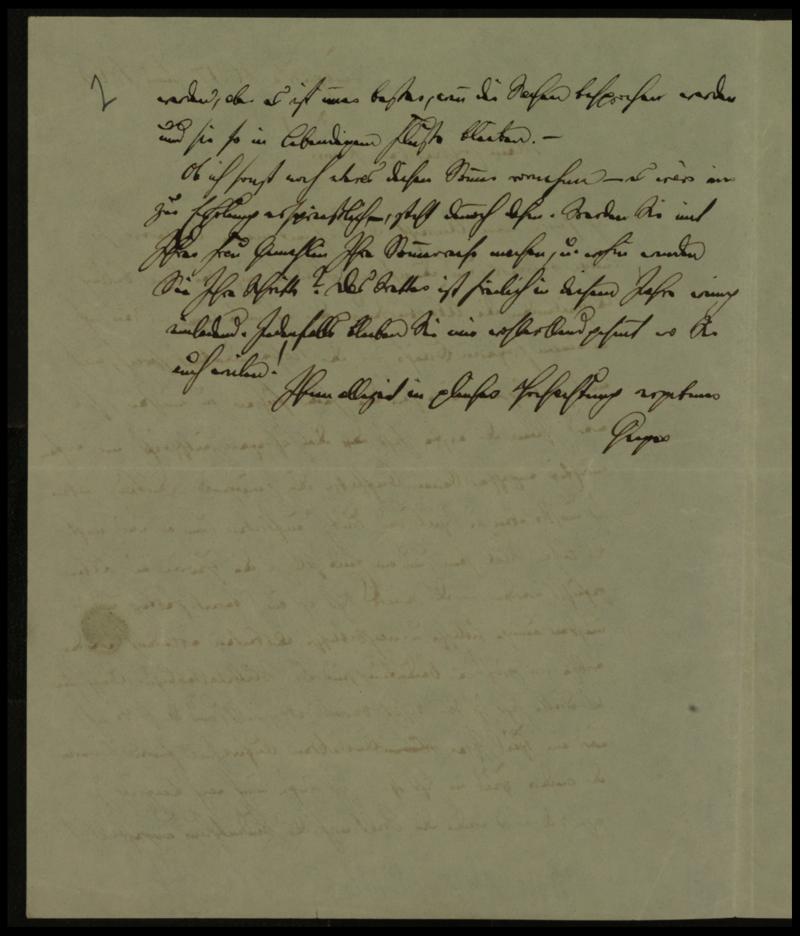 2
werden, aber es ist immer besser, wenn die Sachen besprochen werden
und sie so in lebendigem Fluße bleiben. —
Ob ich sonst noch etwas diesen Sommer vornehme — es wäre mir
zur Erholung ersprießlich —, steht dahin. Werden Sie mit
Ihrer Frau Gemahlin Ihre Sommerreise machen, u. wohin wenden
Sie Ihre Schritte? Das Wetter ist freilich in diesem Jahre wenig
einladend. Jedenfalls bleiben Sie mir wohlwollend gesinnt wo Sie
auch weilen!
Ihnen allezeit in Hochachtung ergebener